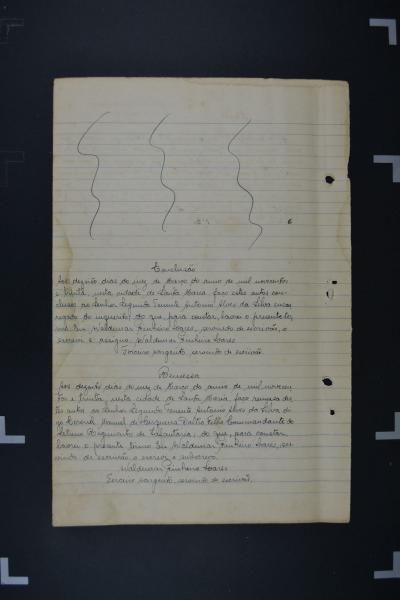 Conclusão
Aos dezoito dias do mez de Março do anno de mil novecentos
e trinta, nesta cidade de Santa Maria, faço estes autos con-
clusos ao Senhor Segundo Tenente Antonio Alves da Silva encar-
regado do inquerito; do que, para constar, lavrei o presente ter-
mo. Eu, Waldemar Pinheiro Soares, servindo de escrivão, o
escrevi e assigno. Waldemar Pinheiro Soares
Terceiro sargento, servindo de escrivão.
Remessa
Aos dezoito dias do mez de Março do anno de mil novecen-
tos e trinta, nesta cidade de Santa Maria, faço remessa des-
tes autos ao Senhor Segundo Tenente Antonio Alves da Silva
Coronel Manoel de Cerqueira Daltro Filho Commandante do
Setimo Regimento de Infantaria; do que, para constar,
lavrei o presente termo. Eu Waldemar Pinheiro Soares, ser-
vindo de escrivão, o escrevi e subscrevo.
Waldemar Pinheiro Soares
Terceiro sargento, servindo de escrivão.